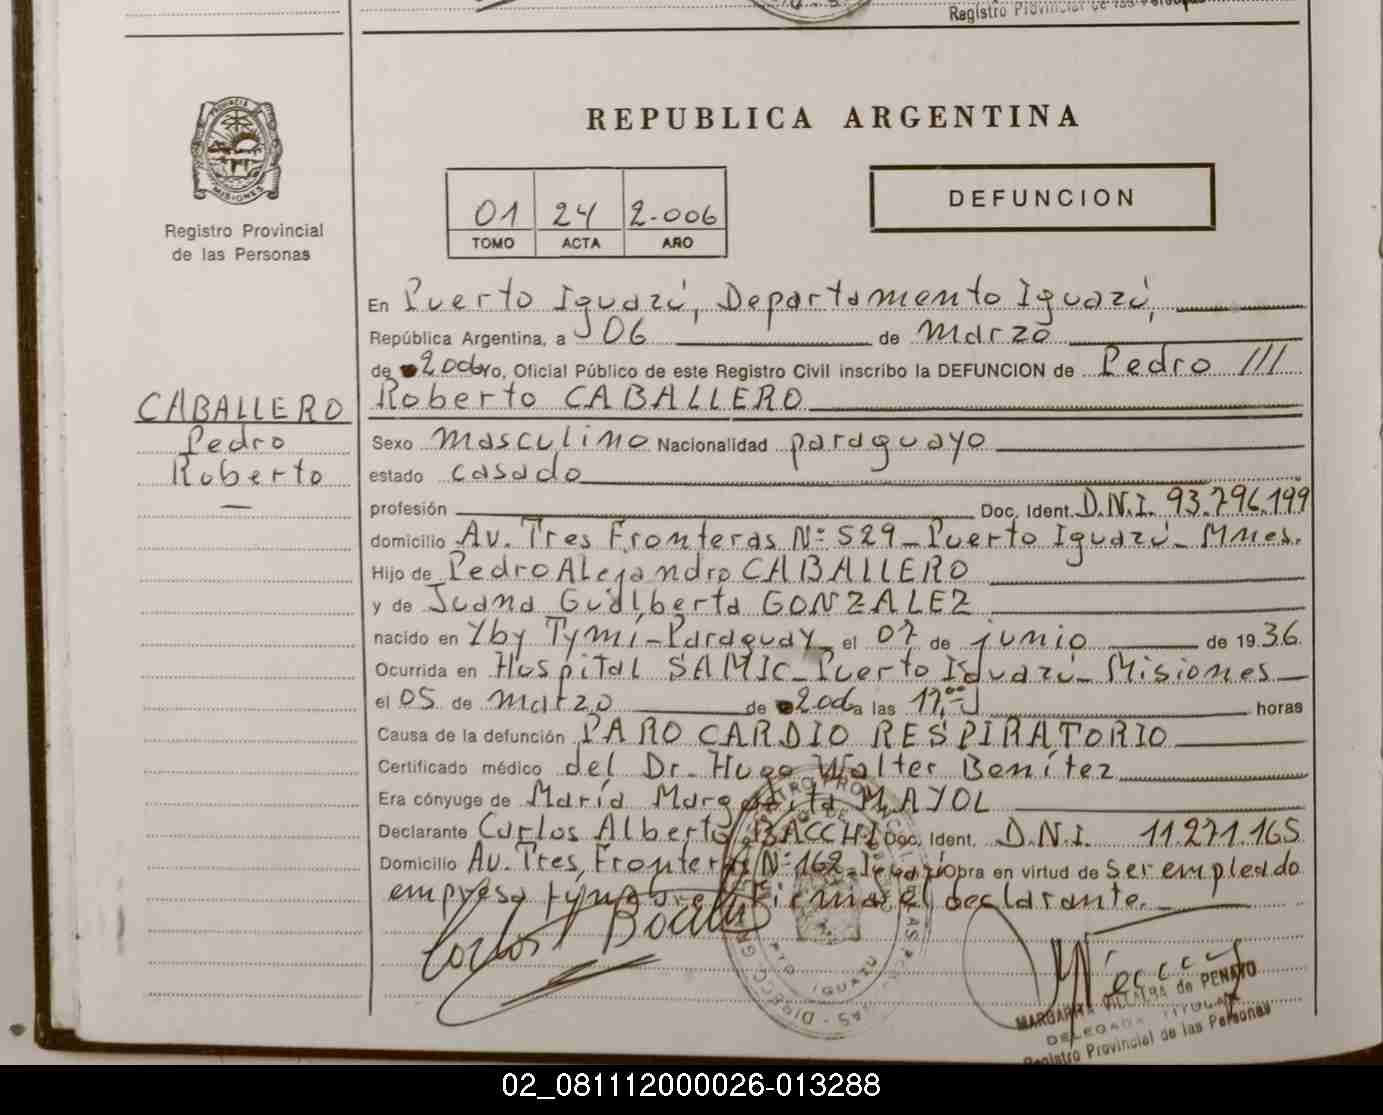 Registro Provincial de las Personas
PROVINCIA DE
MISIONES
Registro Provincial
de las Personas
REPUBLICA ARGENTINA
01 24 2.006
TOMO ACTA AÑO
DEFUNCION
En Puerto Iguazú, Departamento Iguazú,
República Argentina, a 06 de marzo
de 2006 yo, Oficial Público de este Registro Civil inscribo la DEFUNCION de Pedro ///
Roberto CABALLERO
CABALLERO
Pedro
Roberto
—
Sexo masculino Nacionalidad paraguayo
estado casado
profesión Doc. Ident. D.N.I. 93.796.199
domicilio Av. Tres Fronteras Nº 529_Puerto Iguazú_Mnes.
Hijo de Pedro Alejandro CABALLERO
y de Juana Gualberta GONZALEZ
nacido en Yby Tymí_Paraguay_ el 07 de junio de 1936.
Ocurrida en Hospital SAMIC_Puerto Iguazú_Misiones
el 05 de marzo de 2006 a las 17,00 horas
Causa de la defunción PARO CARDIO RESPIRATORIO
Certificado médico del Dr. Hugo Walter Benítez
Era cónyuge de María Margarita MAYOL
Declarante Carlos Alberto BACCHI Doc. Ident. D.N.I. 11.271.165
Domicilio Av. Tres Fronteras Nº 162_Iguazú obra en virtud de ser empleado
empresa fúnebre. Firma el declarante._
Carlos A Bacchi
PTO IGUAZU
MARGARITA VILLALBA de PENAYO
DELEGADA TITULAR
Registro Provincial de las Personas
02_081112000026-013288